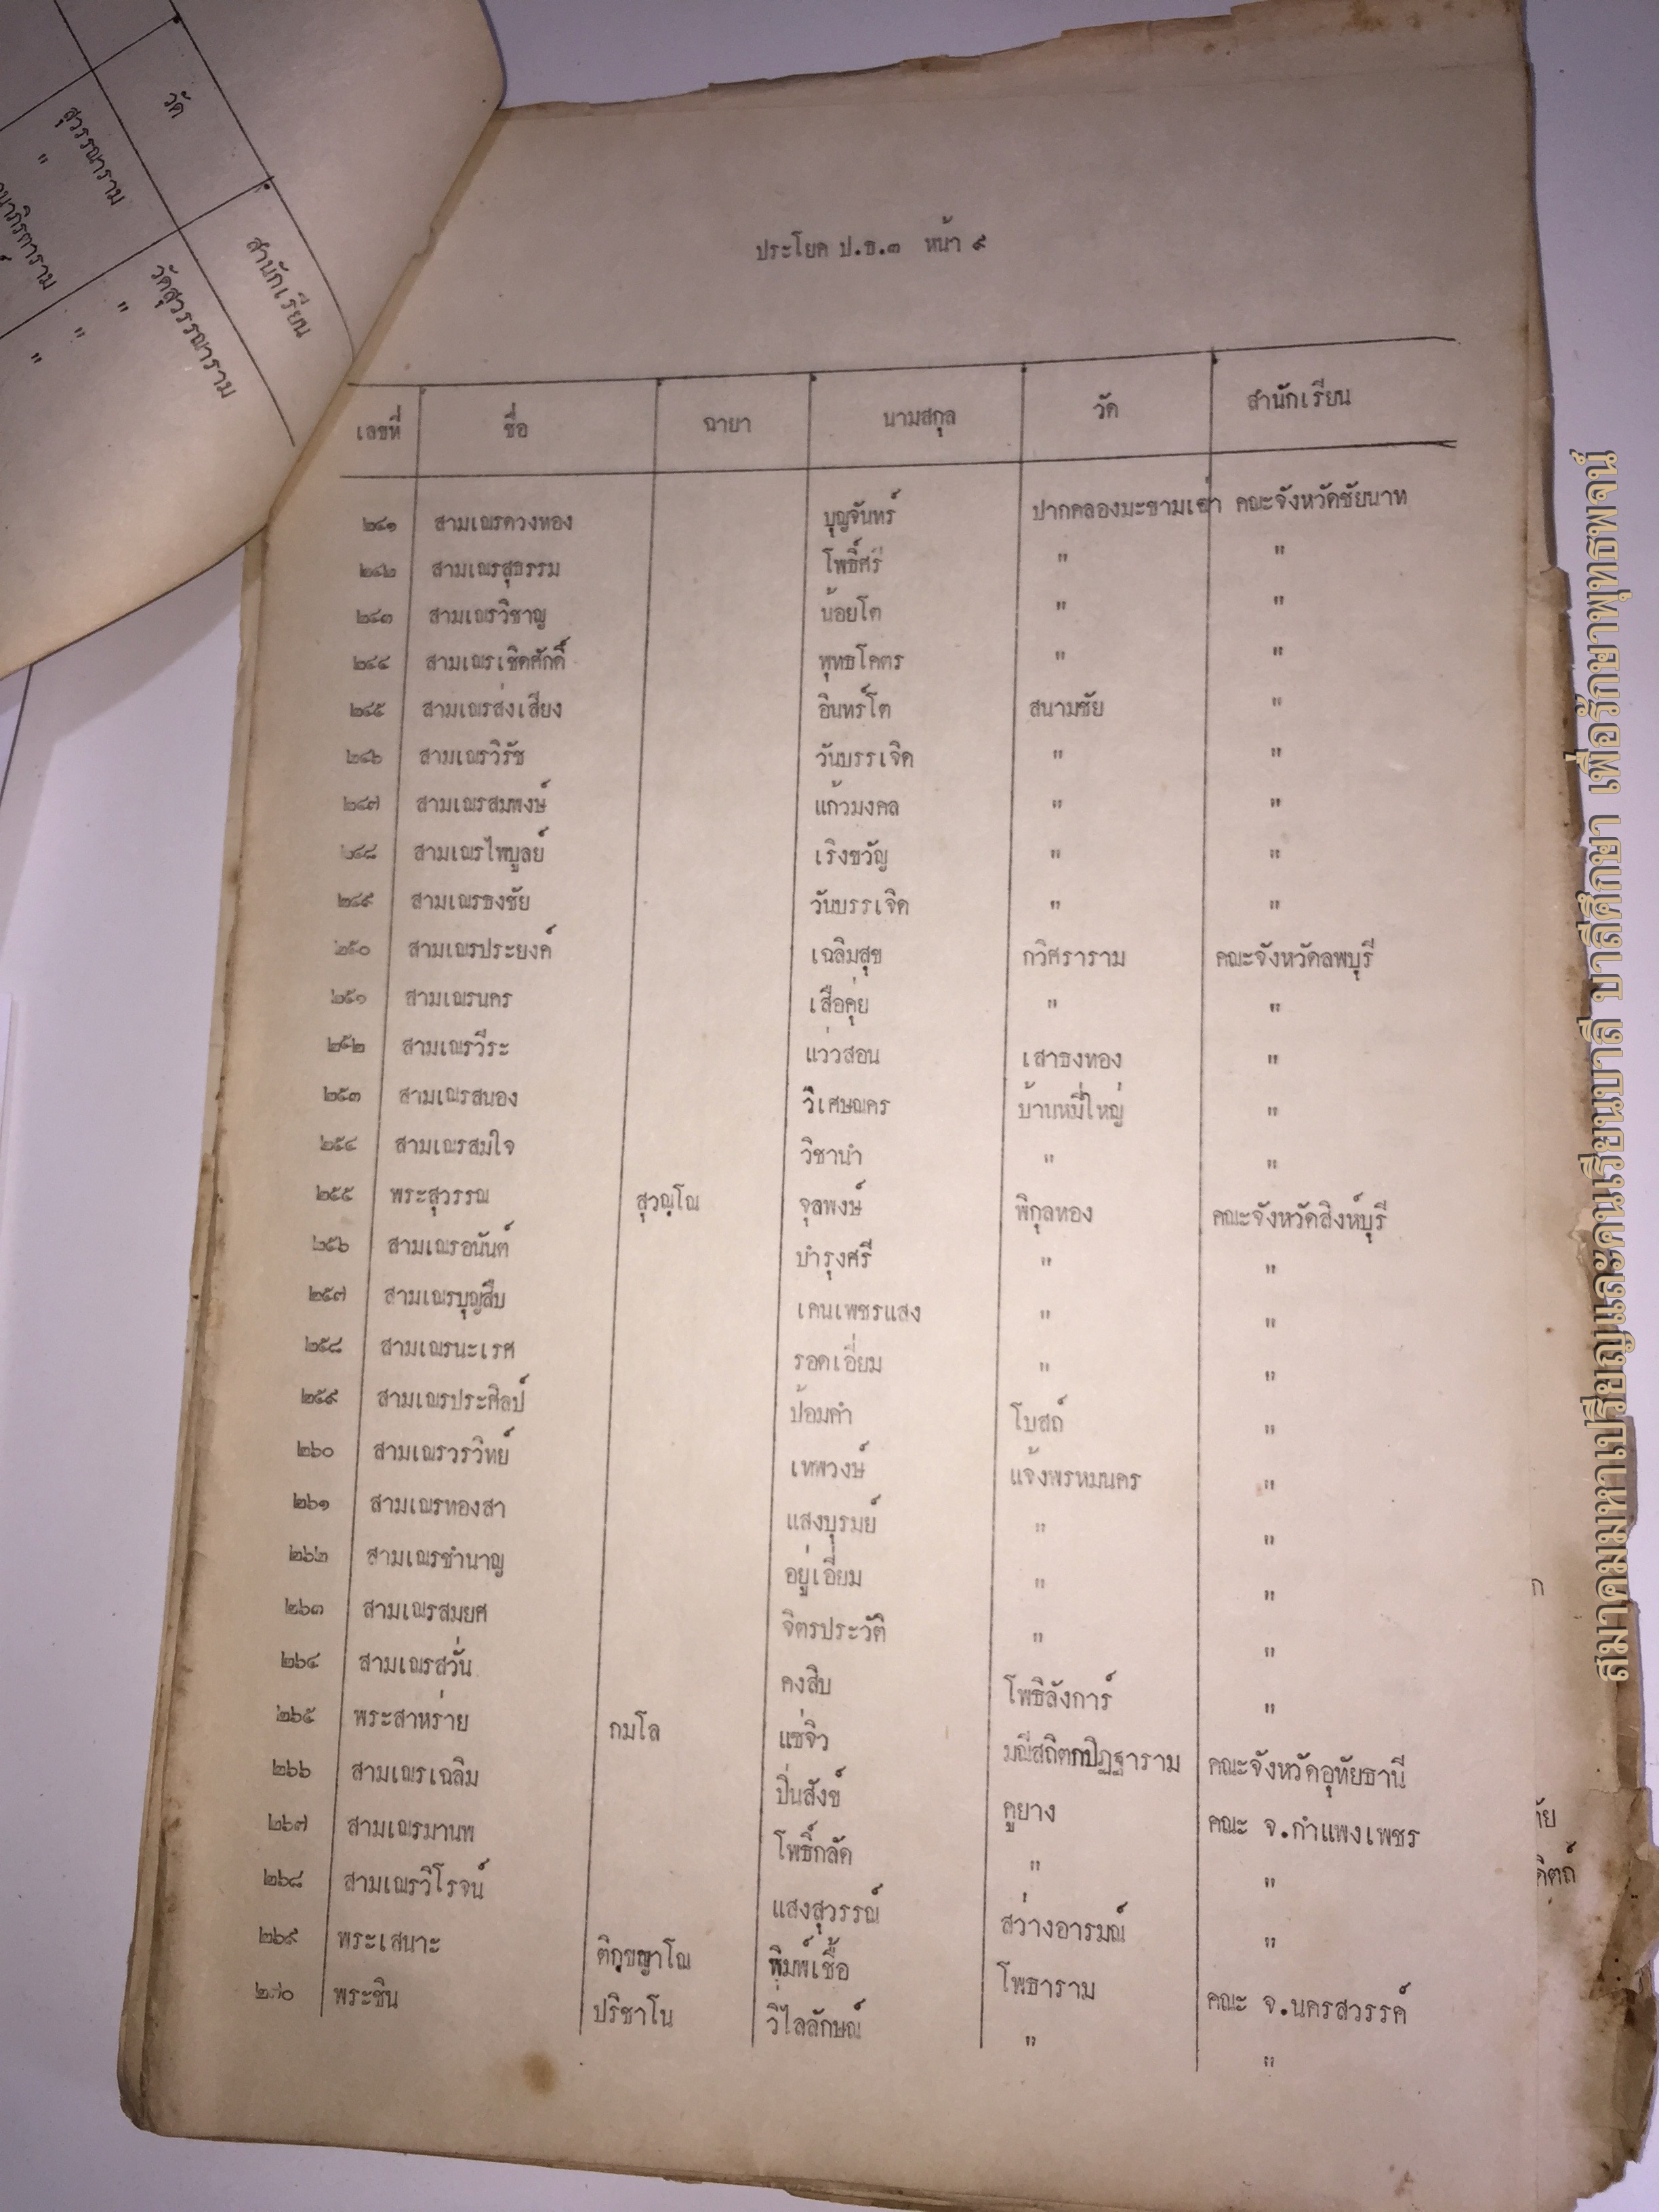 วัด
สำนักเรียน
สุวรรณาราม
วัดสุวรรณาราม
"
"
"
"
ประโยค ป.ธ.๓ หน้า ๙
เลขที่ ชื่อ ฉายา นามสกุล วัด สำนักเรียน
๒๔๑ สามเณรดวงทอง บุญจันทร์ ปากคลองมะขามเฒ่า คณะจังหวัดชัยนาท
๒๔๒ สามเณรสุธรรม โพธิ์ศรี " "
๒๔๓ สามเณรวิชาญ น้อยโต " "
๒๔๔ สามเณรเชิดศักดิ์ พุทธโคตร " "
๒๔๕ สามเณรส่งเสียง อินทร์โต สนามชัย "
๒๔๖ สามเณรวิรัช วันบรรเจิด " "
๒๔๗ สามเณรสมพงษ์ แก้วมงคล " "
๒๔๘ สามเณรไพบูลย์ เริงขวัญ " "
๒๔๙ สามเณรธงชัย วันบรรเจิด " "
๒๕๐ สามเณรประยงค์ เฉลิมสุข กวิศราราม คณะจังหวัดลพบุรี
๒๕๑ สามเณรนคร เสือคุ่ย " "
๒๕๒ สามเณรวีระ แว่วสอน เสาธงทอง "
๒๕๓ สามเณรสนอง วิเศษณคร บ้านหมี่ใหญ่ "
๒๕๔ สามเณรสมใจ วิชานำ " "
๒๕๕ พระสุวรรณ สุวณฺโณ จุลพงษ์ พิกุลทอง คณะจังหวัดสิงห์บุรี
๒๕๖ สามเณรอนันต์ บำรุงศรี " "
๒๕๗ สามเณรบุญสืบ เดนเพชรแสง " "
๒๕๘ สามเณรนะเรศ รอดเอี่ยม " "
๒๕๙ สามเณรประศิลป์ ป้อมคำ โบสถ์ "
๒๖๐ สามเณรวรวิทย์ เทพวงษ์ แจ้งพรหมนคร "
๒๖๑ สามเณรทองสา แสงบุรมย์ " "
๒๖๒ สามเณรชำนาญ อยู่เอี่ยม " "
๒๖๓ สามเณรสมยศ จิตรประวัติ " "
๒๖๔ สามเณรสวั่น คงสิบ โพธิลังการ์ "
๒๖๕ พระสาหร่าย กมโล แซ่จิว มณีสถิตกปิฏฐาราม คณะจังหวัดอุทัยธานี
๒๖๖ สามเณรเฉลิม ปิ่นสังข์ คูยาง คณะ จ.กำแพงเพชร
๒๖๗ สามเณรมานพ โพธิ์กลัด " "
๒๖๘ สามเณรวิโรจน์ แสงสุวรรณ์ สว่างอารมณ์ "
๒๖๙ พระเสนาะ ติกฺขญาโณ พิมพ์เชื้อ โพธาราม คณะ จ.นครสวรรค์
๒๗๐ พระชิน ปริชาโน วิไลลักษณ์ " "
สมาคมมหาเปรียญและคนเรียนบาลี บาลีศึกษา เพื่อรักษาพุทธพจน์